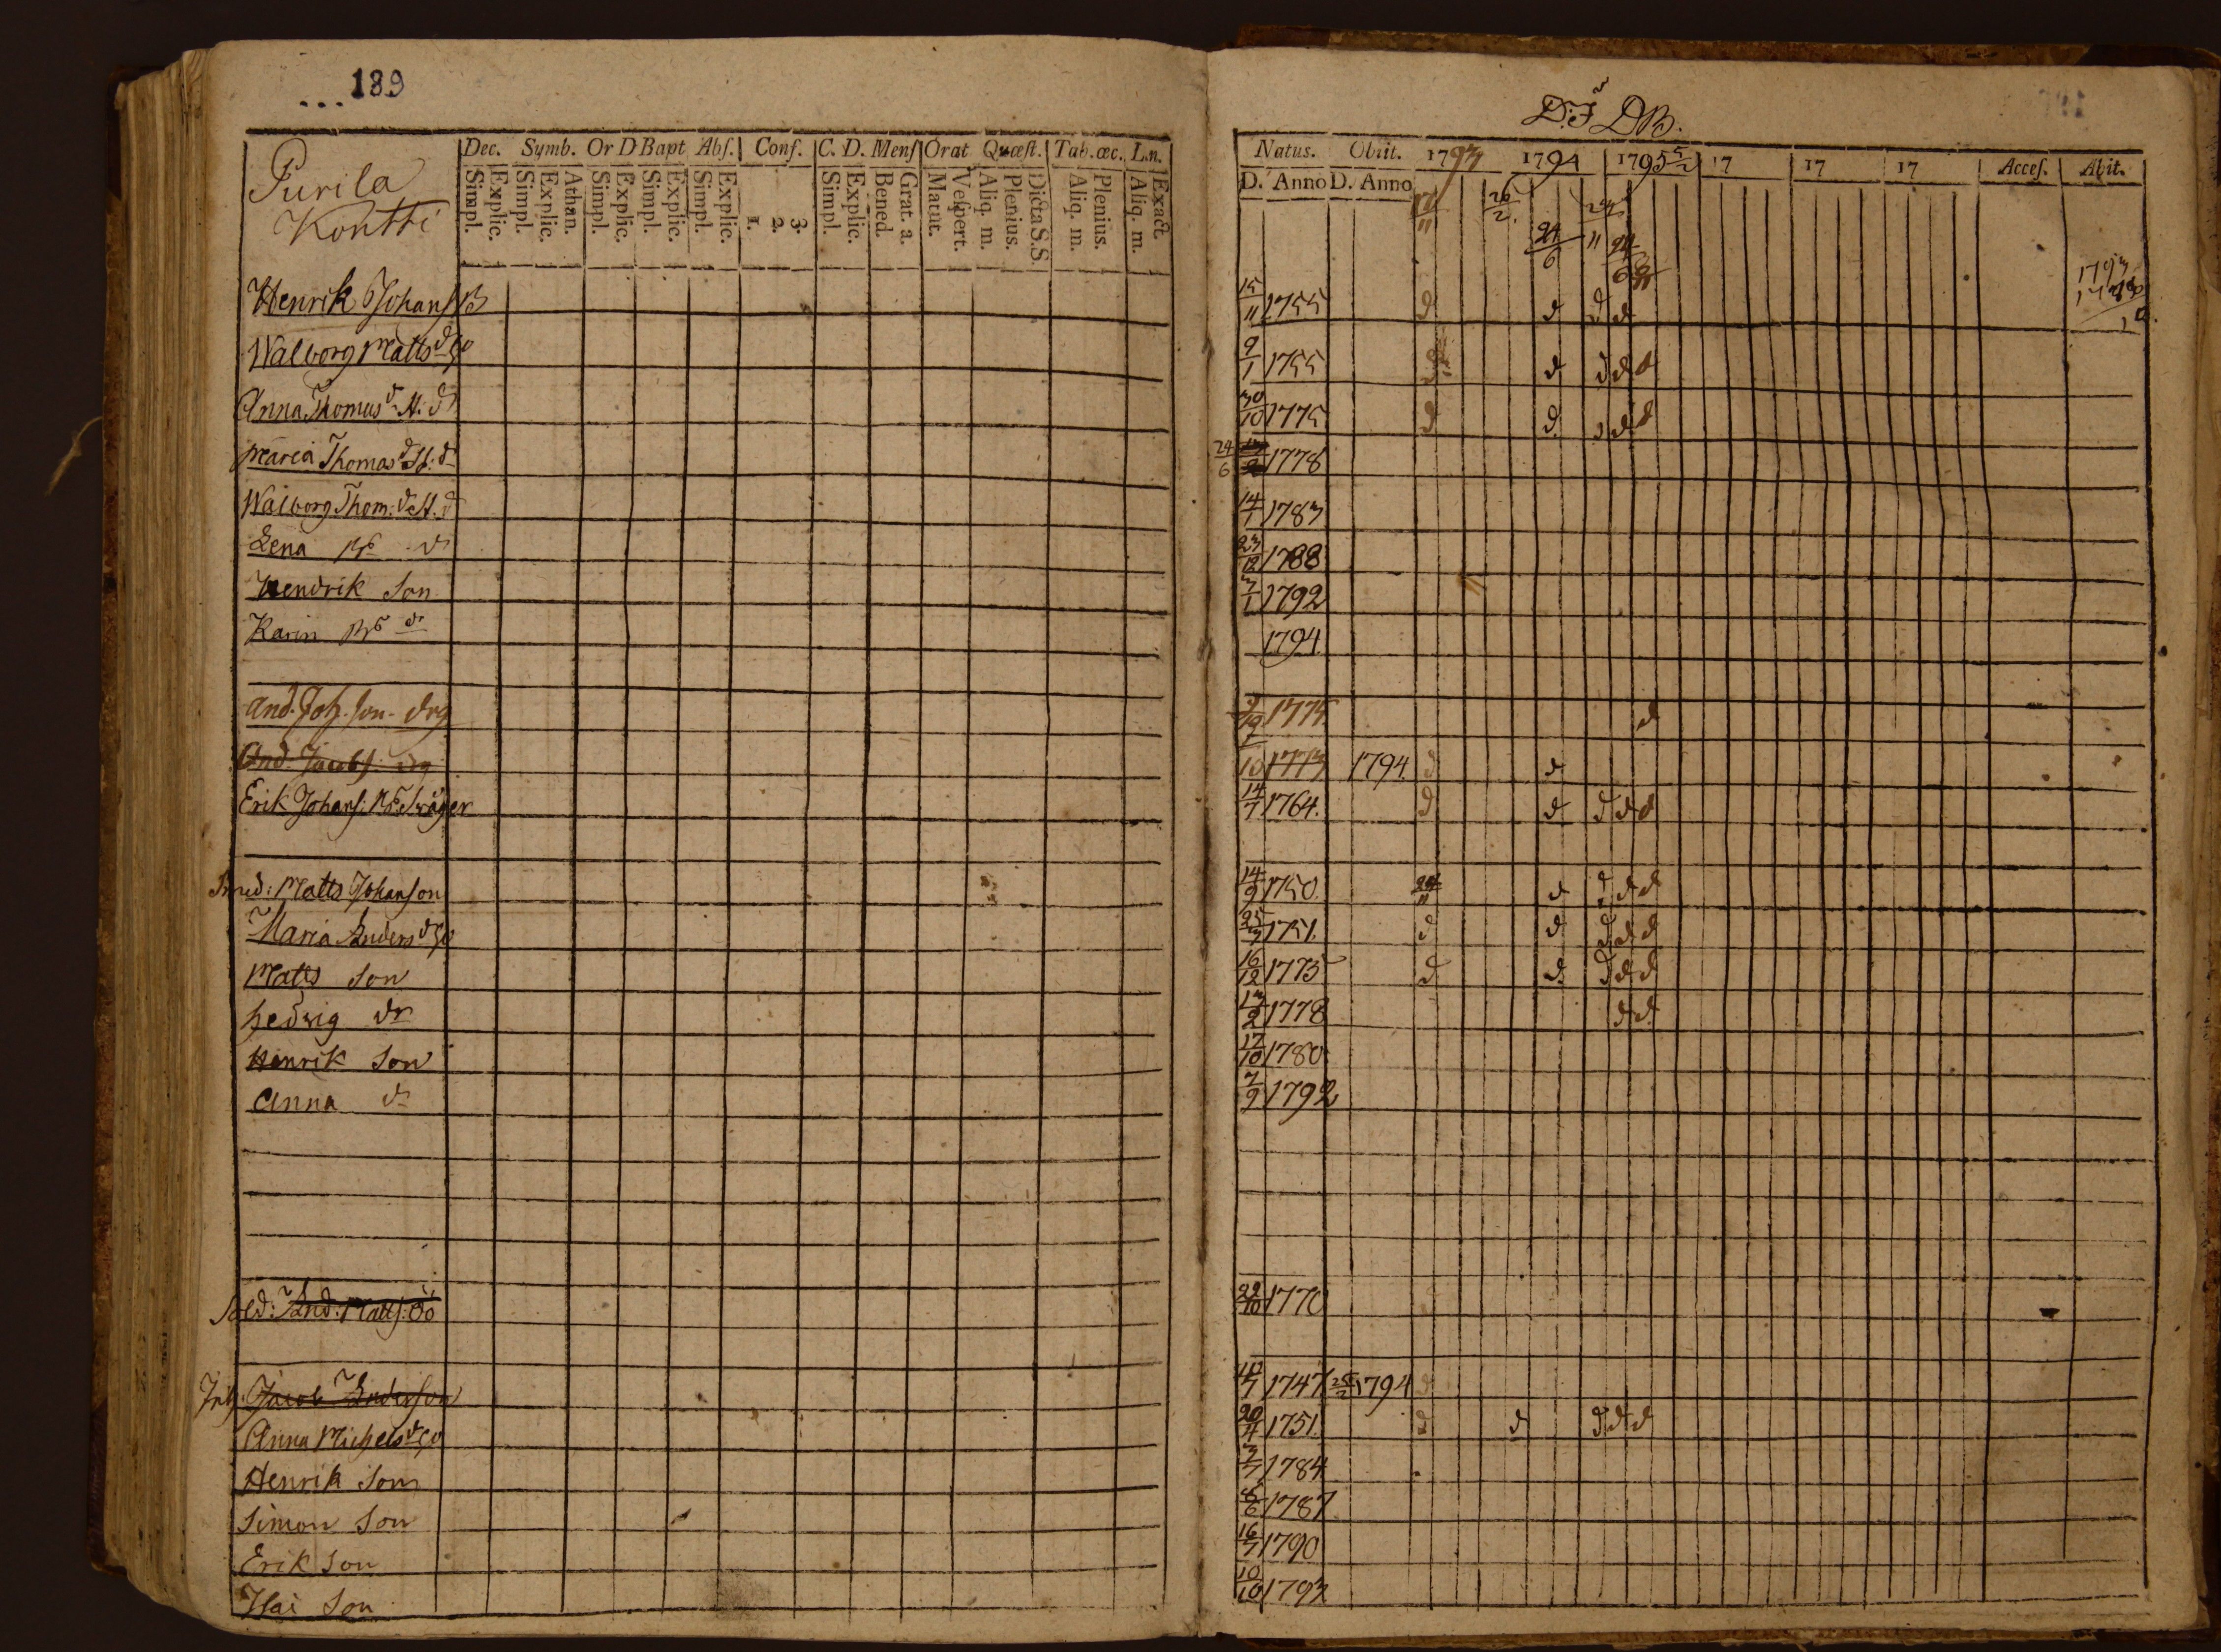 189
D:F DB.
Purila
Kontti
Dec. Symb. Or D Bapt Abs. Conf. C. D. Mens Orat Quæst. Tab. œc. L.n.
Simpl. Explic. Simpl. Explic. Athan. Simpl. Explic. Simpl. Explic. Simpl. Explic. 1. 2. 3. Simpl. Explic. Bened. Grat. a. Matut. Vespert. Aliq. m. Plenius. Dicta S.S. Aliq. m. Plenius. Aliq. m. Exact.
Natus. Obiit. 1793 1794 1795 5/2 17 17 17 Acces. Abit.
D. Anno D. Anno
26/2. 24/6
Henrik Johans B 15/11 1755 d d d d
Walborg Matts d 9/1 1755 d d d d d
Anna Thomas d. H. d 30/10 1775 d d d d
Maria Thomas d H. d 24/6 1778
Walborg Thom. d H. d 14/1 1783
Lena Bs d 1788
Hendrik Son 7/1 1792
Karin Bs d 1794
And. Joh. son drg 1775 d
And. Jacobs. drg 10 1773 1794 d d
Erik Johans. Bs Swåger 14/7 1764. d d d d d
Smed: Matts Johanson 14/9 1750. 24/11 d d d d
Maria Anders d 25/7 1751. d d d d d
Matts Son 16/12 1775 d d d d d
Hedvig dr 13/2 1778 d d
Henrik Son 17/10 1780
Anna d 7/9 1792
Sold: And: Matts: 29/10 1770
Jacob Anderson 1747 25/2 1794 d
Anna Michels d 20/4 1751. d d d d d
Henrik Son 3/7 1784
Simon Son 1787
Erik Son 16/7 1790
Isai Son 10/10 1793